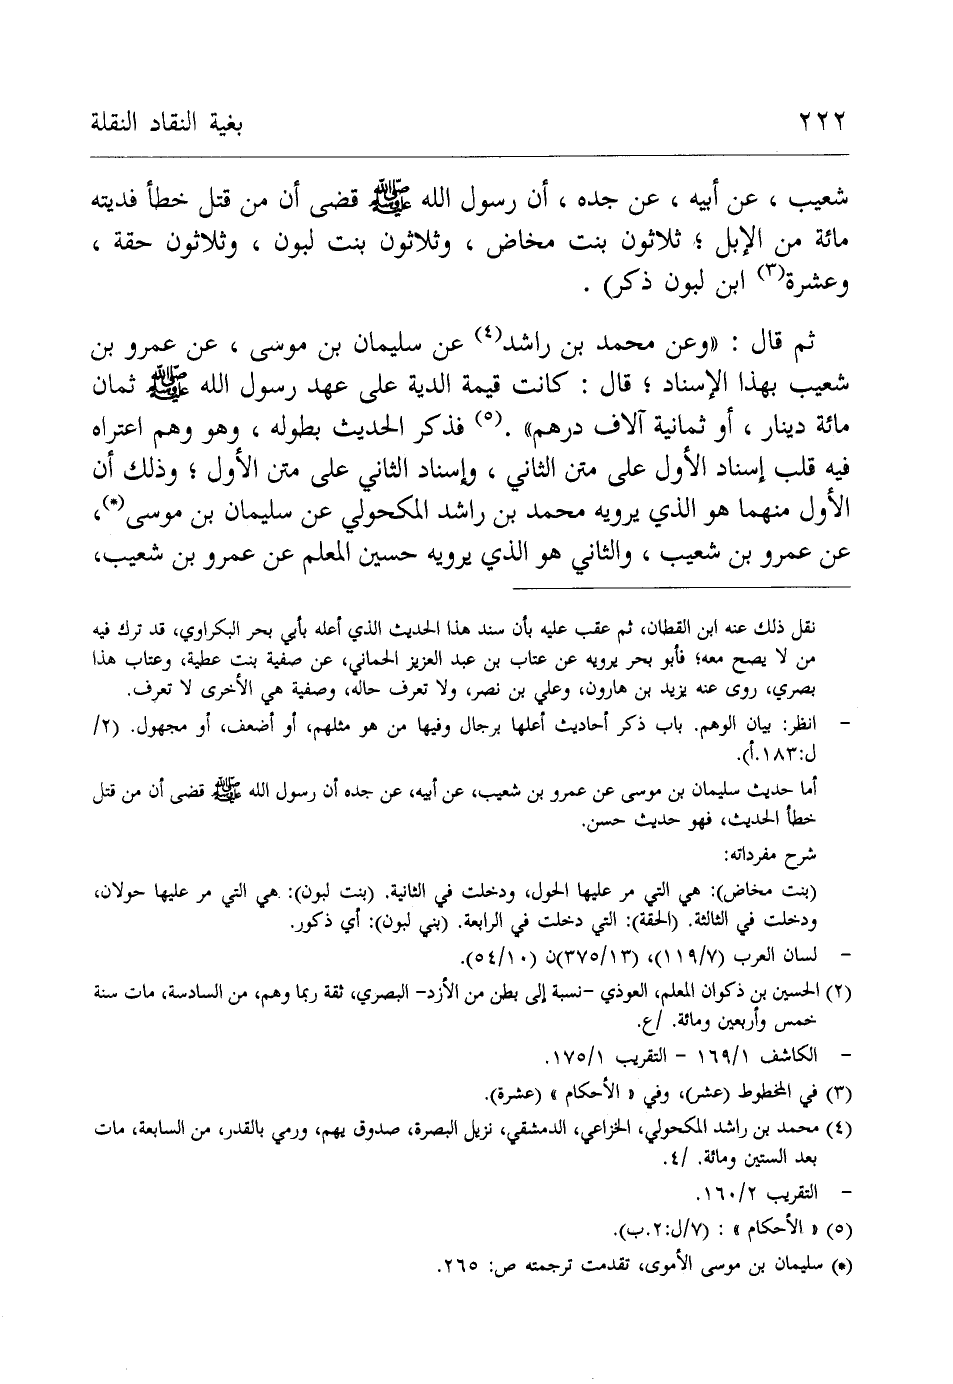 ٢٢٢ بغية النقاد النقلة
شعيب ، عن أبيه ، عن جده ، أن رسول الله ﷺ قضى أن من قتل خطأ فديته
مائة من الإبل ؛ ثلاثون بنت مخاض ، وثلاثون بنت لبون ، وثلاثون حقة ،
وعشرة(٣) ابن لبون ذكر) .
ثم قال : «وعن محمد بن راشد(٤) عن سليمان بن موسى ، عن عمرو بن
شعيب بهذا الإسناد ؛ قال : كانت قيمة الدية على عهد رسول الله ﷺ ثمان
مائة دينار ، أو ثمانية آلاف درهم» .(٥) فذكر الحديث بطوله ، وهو وهم اعتراه
فيه قلب إسناد الأول على متن الثاني ، وإسناد الثاني على متن الأول ؛ وذلك أن
الأول منهما هو الذي يرويه محمد بن راشد المكحولي عن سليمان بن موسى(*)،
عن عمرو بن شعيب ، والثاني هو الذي يرويه حسين المعلم عن عمرو بن شعيب،
نقل ذلك عنه ابن القطان، ثم عقب عليه بأن سند هذا الحديث الذي أعله بأبي بحر البكراوي، قد ترك فيه
من لا يصح معه؛ فأبو بحر يرويه عن عتاب بن عبد العزيز الحماني، عن صفية بنت عطية، وعتاب هذا
بصري، روى عنه يزيد بن هارون، وعلي بن نصر، ولا تعرف حاله، وصفية هي الأخرى لا تعرف.
- انظر: بيان الوهم. باب ذكر أحاديث أعلها برجال وفيها من هو مثلهم، أو أضعف، أو مجهول. (٢/
ل:١٨٣.أ).
أما حديث سليمان بن موسى عن عمرو بن شعيب، عن أبيه، عن جده أن رسول الله ﷺ قضى أن من قتل
خطأ الحديث، فهو حديث حسن.
شرح مفرداته:
(بنت مخاض): هي التي مر عليها الحول، ودخلت في الثانية. (بنت لبون): هي التي مر عليها حولان،
ودخلت في الثالثة. (الحقة): التي دخلت في الرابعة. (بني لبون): أي ذكور.
- لسان العرب (١١٩/٧)، (٣٧٥/١٣)ن (٥٤/١٠).
(٢) الحسين بن ذكوان المعلم، العوذي -نسبة إلى بطن من الأزد- البصري، ثقة ربما وهم، من السادسة، مات سنة
خمس وأربعين ومائة. /ع.
- الكاشف ١٦٩/١ - التقريب ١٧٥/١.
(٣) في المخطوط (عشر)، وفي « الأحكام » (عشرة).
(٤) محمد بن راشد المكحولي، الخزاعي، الدمشقي، نزيل البصرة، صدوق يهم، ورمي بالقدر، من السابعة، مات
بعد الستين ومائة. /٤.
- التقريب ١٦٠/٢.
(٥) « الأحكام » : (٧/ل:٢.ب).
(*) سليمان بن موسى الأموى، تقدمت ترجمته ص: ٢٦٥.